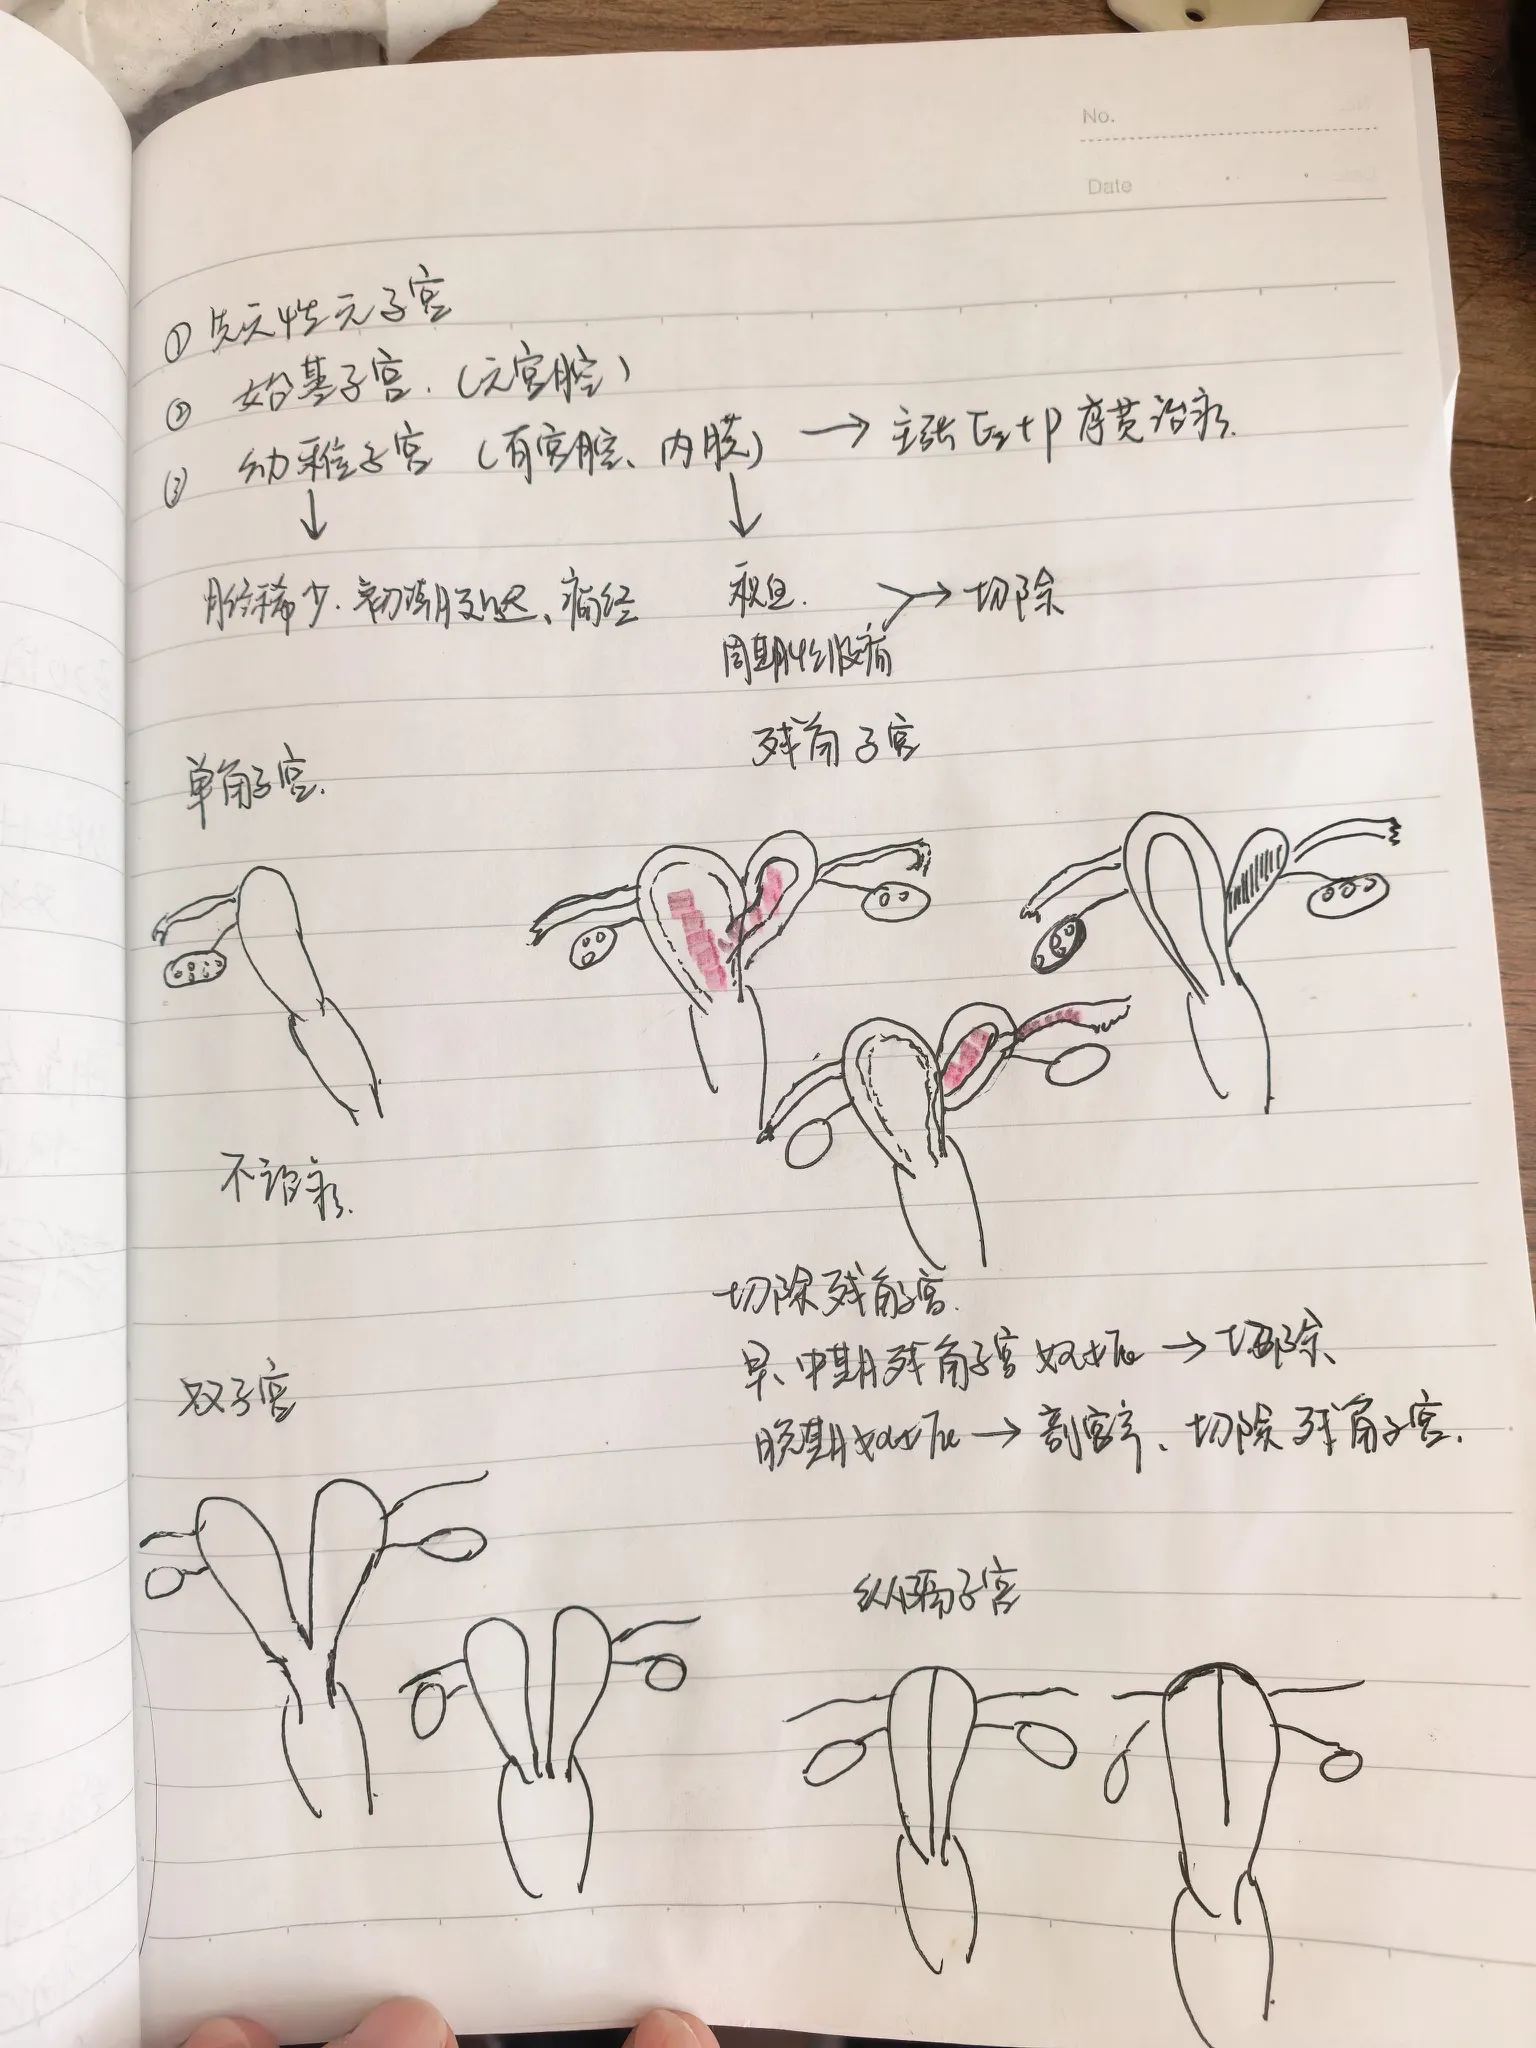 No.
Date
① 先天性无子宫
② 始基子宫.(无宫腔)
③ 幼稚子宫 (有宫腔、内膜) → 主张E₂+P序贯治疗.
↓ ↓
月经稀少.初潮延迟、痛经 积血. → 切除
周期性腹痛
残角子宫
单角子宫.
不治疗.
切除残角子宫.
早、中期残角子宫妊娠 → 切除、
双子宫
晚期妊娠 → 剖宫产、切除残角子宫.
纵隔子宫